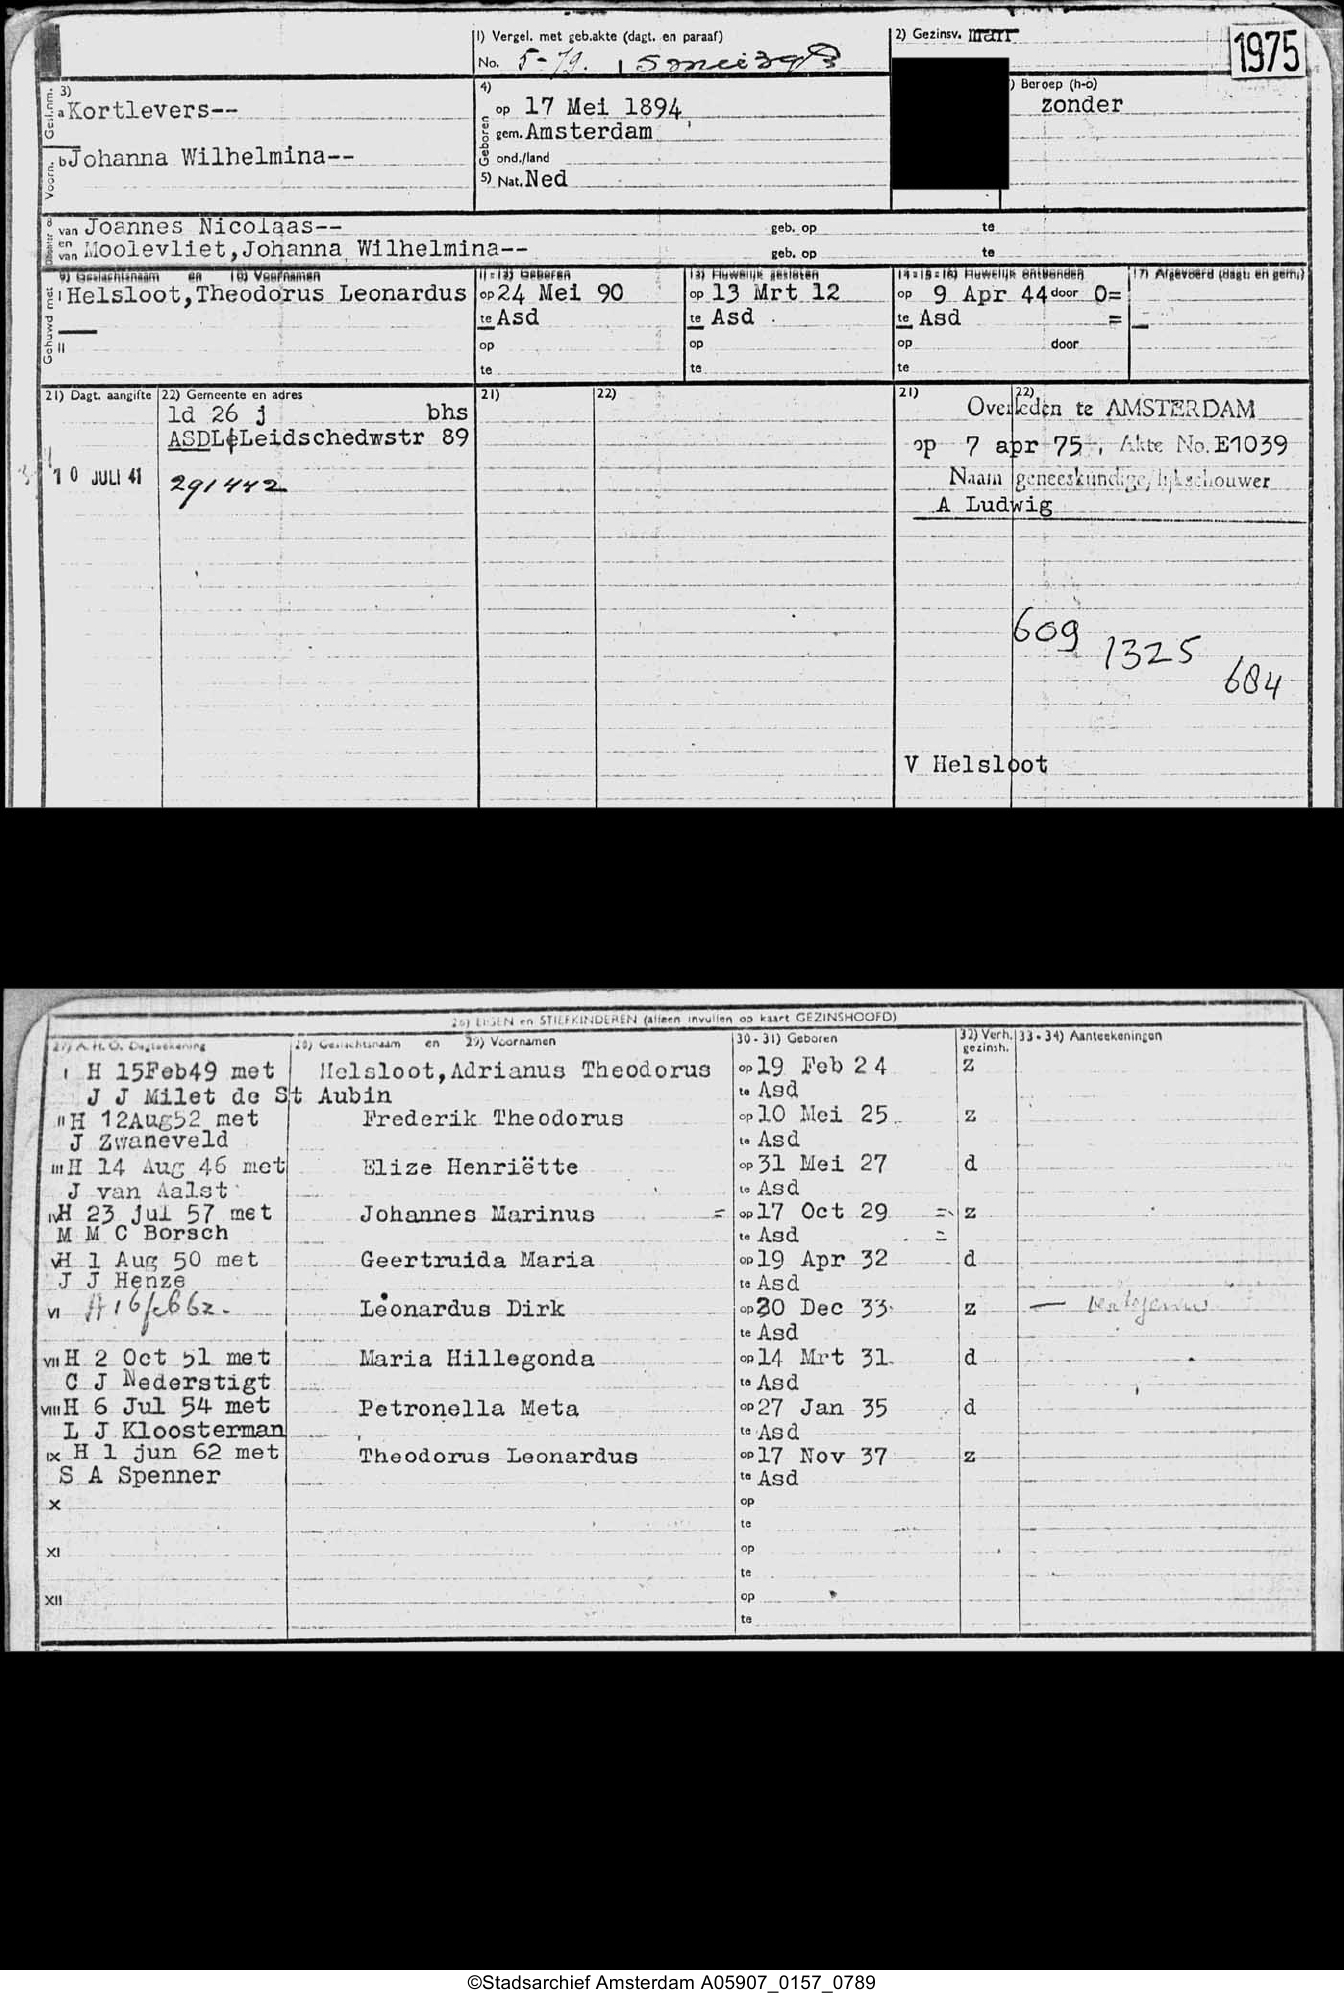 1) Vergel. met geb.akte (dagt. en paraaf)
No. 5-79. 15 mei 39
2) Gezinsv. man
1975
3)
Gesl.nm. a Kortlevers--
Voorn. b Johanna Wilhelmina--
4)
Geboren op 17 Mei 1894
gem. Amsterdam
ond./land
5) Nat. Ned
) Beroep (h-o)
zonder
8
van Joannes Nicolaas-- geb. op te
en van Moolevliet, Johanna Wilhelmina-- geb. op te
Gehuwd met
9) Geslachtsnaam en 10) Voornamen
11-12) Geboren
13) Huwelijk gesloten
14-15-16) Huwelijk ontbonden
17) Afgevoerd (dagt. en gem.)
I Helsloot,Theodorus Leonardus op 24 Mei 90 op 13 Mrt 12 op 9 Apr 44 door O=
te Asd te Asd te Asd =
II op op op door
te te te
21) Dagt. aangifte 22) Gemeente en adres 21) 22) 21) 22)
ld 26 j bhs
ASDLeLeidschedwstr 89
10 JULI 41
291442
Overleden te AMSTERDAM
op 7 apr 75, Akte No. E1039
Naam geneeskundige/lijkschouwer
A Ludwig
609
1325
684
V Helsloot
26) EIGEN en STIEFKINDEREN (alleen invullen op kaart GEZINSHOOFD)
27) A. H. O. Dagteekening 28) Geslachtsnaam en 29) Voornamen 30-31) Geboren 32) Verh. gezinsh. 33-34) Aanteekeningen
I H 15Feb49 met Helsloot,Adrianus Theodorus op 19 Feb 24 z
J J Milet de St Aubin te Asd
II H 12Aug52 met Frederik Theodorus op 10 Mei 25 z
J Zwaneveld te Asd
III H 14 Aug 46 met Elize Henriëtte op 31 Mei 27 d
J van Aalst te Asd
IV H 23 jul 57 met Johannes Marinus = op 17 Oct 29 = z
M M C Borsch te Asd =
V H 1 Aug 50 met Geertruida Maria op 19 Apr 32 d
J J Henze te Asd
VI H 16 feb 62. Leonardus Dirk op 20 Dec 33 z —
te Asd
VII H 2 Oct 51 met Maria Hillegonda op 14 Mrt 31 d
C J Nederstigt te Asd
VIII H 6 Jul 54 met Petronella Meta op 27 Jan 35 d
L J Kloosterman te Asd
IX H 1 jun 62 met Theodorus Leonardus op 17 Nov 37 z
S A Spenner te Asd
X op
te
XI op
te
XII op
te
©Stadsarchief Amsterdam A05907_0157_0789